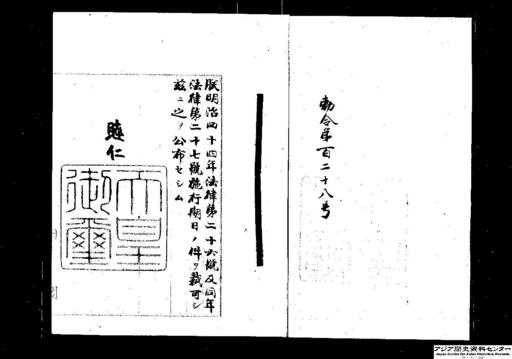 勅令第百二十八号
朕明治四十四年法律第二十六號及同年
法律第二十七號施行期日ノ件ヲ裁可シ
茲ニ之ヲ公布セシム
睦仁
天皇
御璽
アジア歴史資料センター
Japan Center for Asian Historical Records